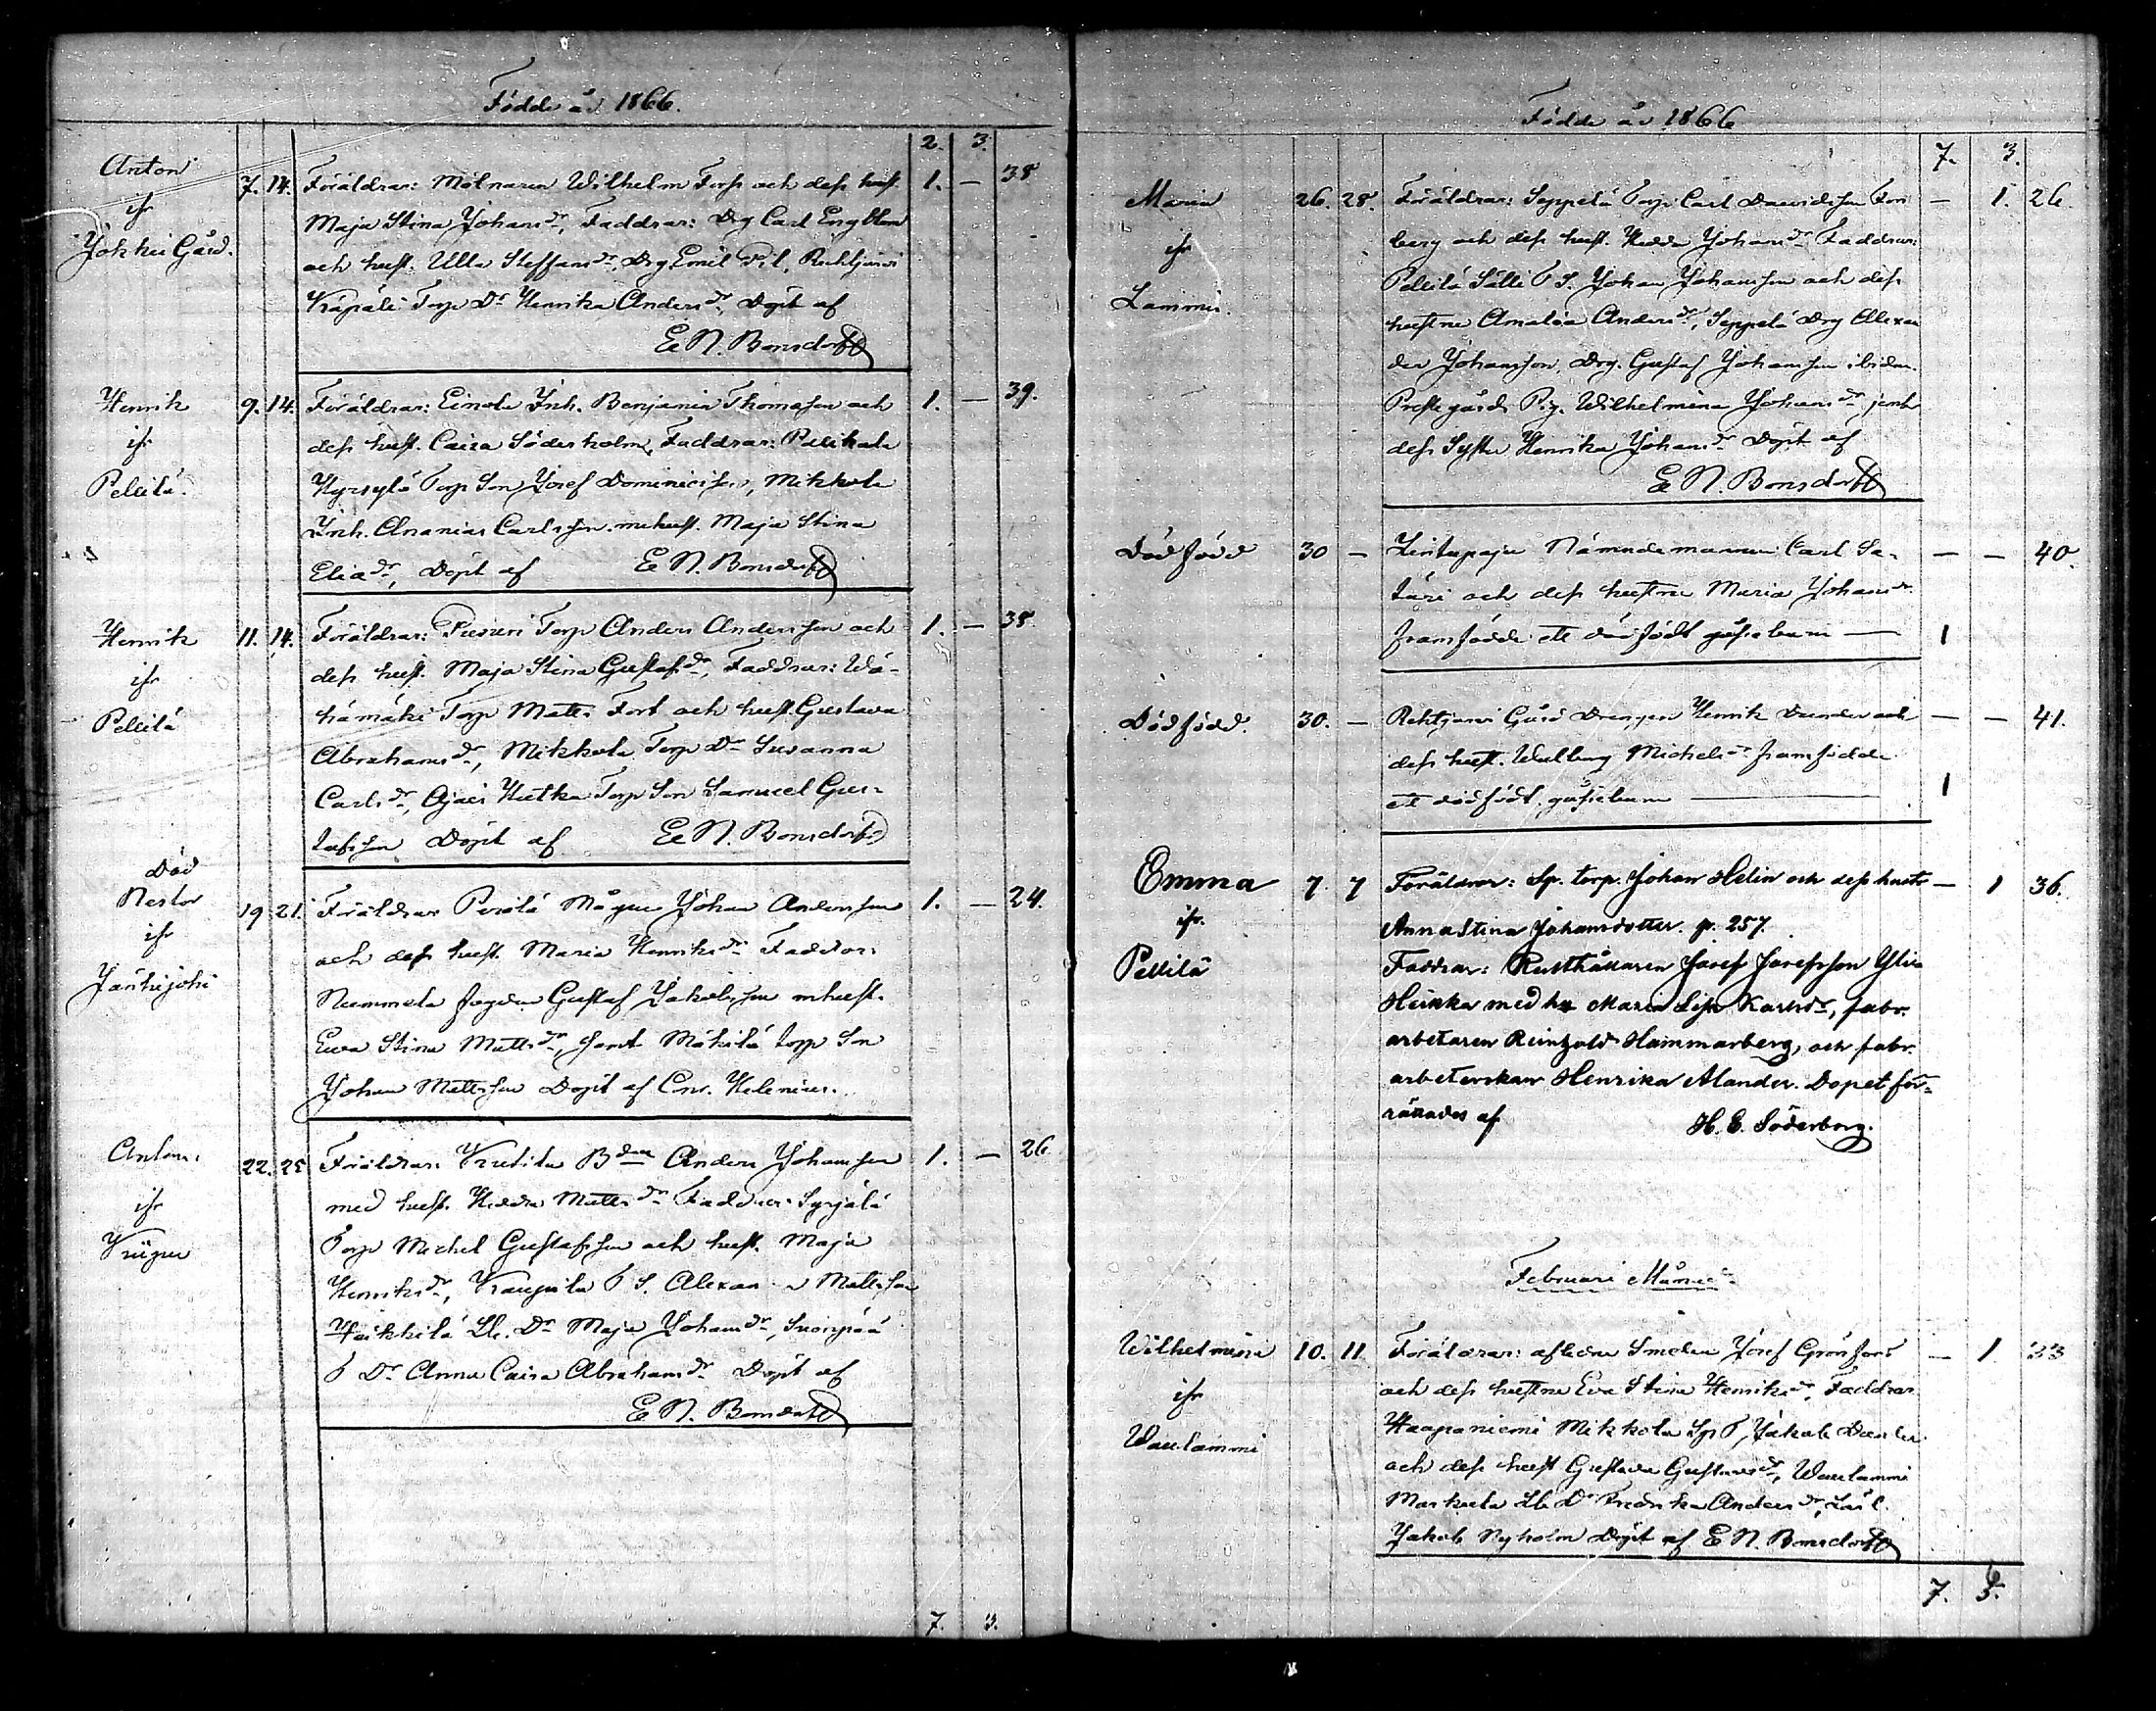 Födde år 1866.
2. 3.
Anton 7. 14. Föräldrar: Mölnaren Wilhelm Forss och dess hust. 1. — 38
ifr Maja Stina Johansdr, Faddrar: Drg Carl Engblom
Jokkis Gård. och hust. Ulla Steffansdr, Drg Emil
Torp Dr Henrika Andersdr, Döpt af
E N. Bonsdorff
Henrik 9. 14. Föräldrar: Einola Inh. Benjamin Thomasson och 1. — 39.
ifr dess hust. Caisa Söderholm, Faddrar:
Pellilä. Torp Son Josef Dominicisson, Mikkola
Inh. Ananias Carlsson m hust. Maja Stina
Eliadr, Döpt af E N. Bonsdorff
Henrik 11. 14. Föräldrar: Torp Anders Andersson och 1. — 38
ifr dess hust. Maja Stina Gustafsdr, Faddrar: Wä-
Pellilä hämäki Torp Matts Fort och hust. Gustava
Abrahamsdr, Mikkola Torp Dr Susanna
Carlsdr, Hutka Torp Son Samuel Gus-
tafsson Döpt af E N. Bonsdorff
Död
Nestor 19. 21. Föräldrar Perälä Mågen Johan Andersson 1. — 24.
ifr och dess hust. Maria Henriksdr Faddrar:
Nummela fogden Gustaf Jakobsson m hust.
Ewa Stina Mattsdr, samt Mäkilä torp Son
Johan Mattsson Döpt af Helenius.
Anton 22. 25 Föräldrar: Bden Anders Johansson 1. — 26
ifr med hust. Hedda Mattsdr Faddrar: Syrjälä
Torp Michel Gustafsson och hust. Maja
Henriksdr, T S. Mattsson
Heikkilä Dr Maja Johansdr, Suonpää
T Dr Anna Caisa Abrahamsdr Döpt af
E N. Bonsdorff
7. 3.
Födde år 1866
7. 3.
Maria 26. 28. Föräldrar: Seppelä Torp Carl Davidsson Fors — 1. 26.
ifr berg och dess hust. Hedda Johansdr Faddrar:
Lammi. Pellilä Sälli T S. Johan Johansson och dess
hustru Amalia Andersdr, Seppelä Drg Alexan
der Johansson, Drg. Gustaf Johansson ibidem.
Prestgårds Pig. Wilhelmina Johansdr jemte
dess Syster Henrika Johansdr Döpt af
E N. Bonsdorff
Dödfödd 30 — Lintupaju Nämndemannen Carl Sa- — — 40.
och dess hustru Maria Johansdr
framfödde ett dödfödt gossebarn — 1
Dödfödd. 30. — Rehtijärvi Gård Drengen Henrik Dunder och — — 41.
dess hust. Walborg Michelsdr framfödde
ett dödfödt gossebarn — 1
Emma 7. 7 Föräldrar: Sp. torp. Johan Helin och dess hustr — 1 36.
ifr. Anna Stina Johansdotter. p. 257.
Pellilä Faddrar: Rusthållaren Josef Josefsson Yli-
med h Maria Lisa Karlsdr, fabr.
arbetaren Reinhold Hammarberg, och fabr.
arbeterskan Henrika Alander. Dopet för-
rättades af H. E. Söderborg.
Februari Månad
Wilhelmina 10. 11. Föräldrar: aflidne Smeden Josef Grönfors — 1. 33
ifr och dess hustru Eva Stina Henriksdr, Faddrar
Waulammi Haapaniemi Mikkola Jakob
och dess hust Gustava Gustavsdr, Waulammi
Markula Dr Fredrika Andersdr,
Jakob Nyholm Döpt af E N. Bonsdorff
7. 5.